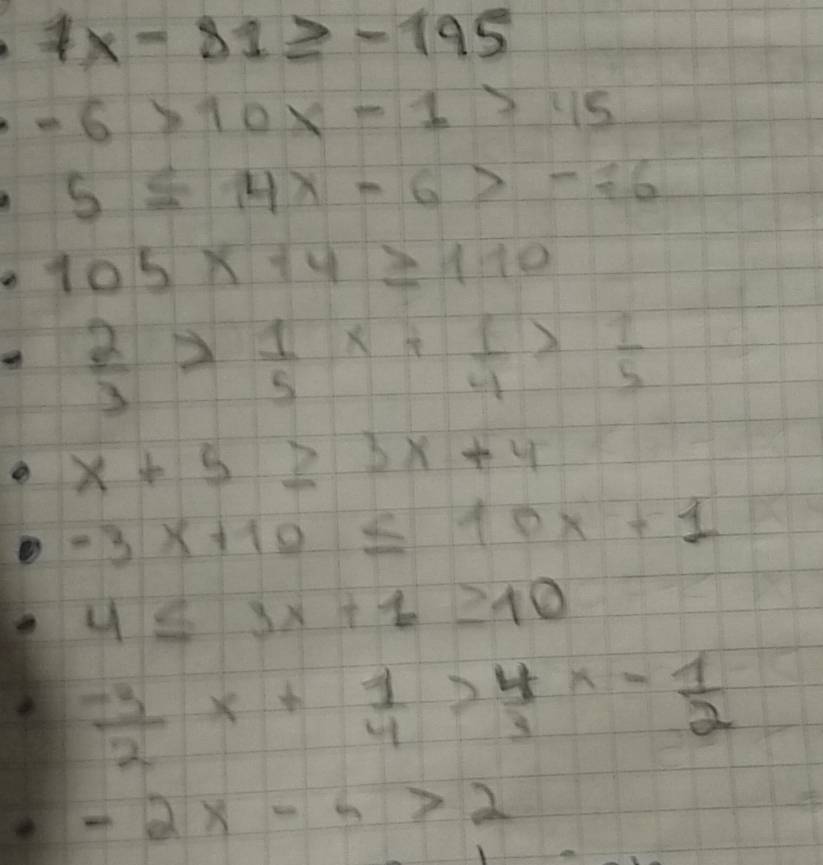 7x - 81 ≥ -195
-6 > 10x - 1 > 45
5 ≤ 14x - 6 >
105x + 4 ≥ 110
2/3 > 1/5 x + 1/4 > 1/5
x + 5 ≥ 3x + 4
-3x + 10 ≤ 10x + 1
4 ≤ 3x + 1 ≥ 10
-3/2 x + 1/4 > 4/3 x - 1/2
-2x - 5 > 2